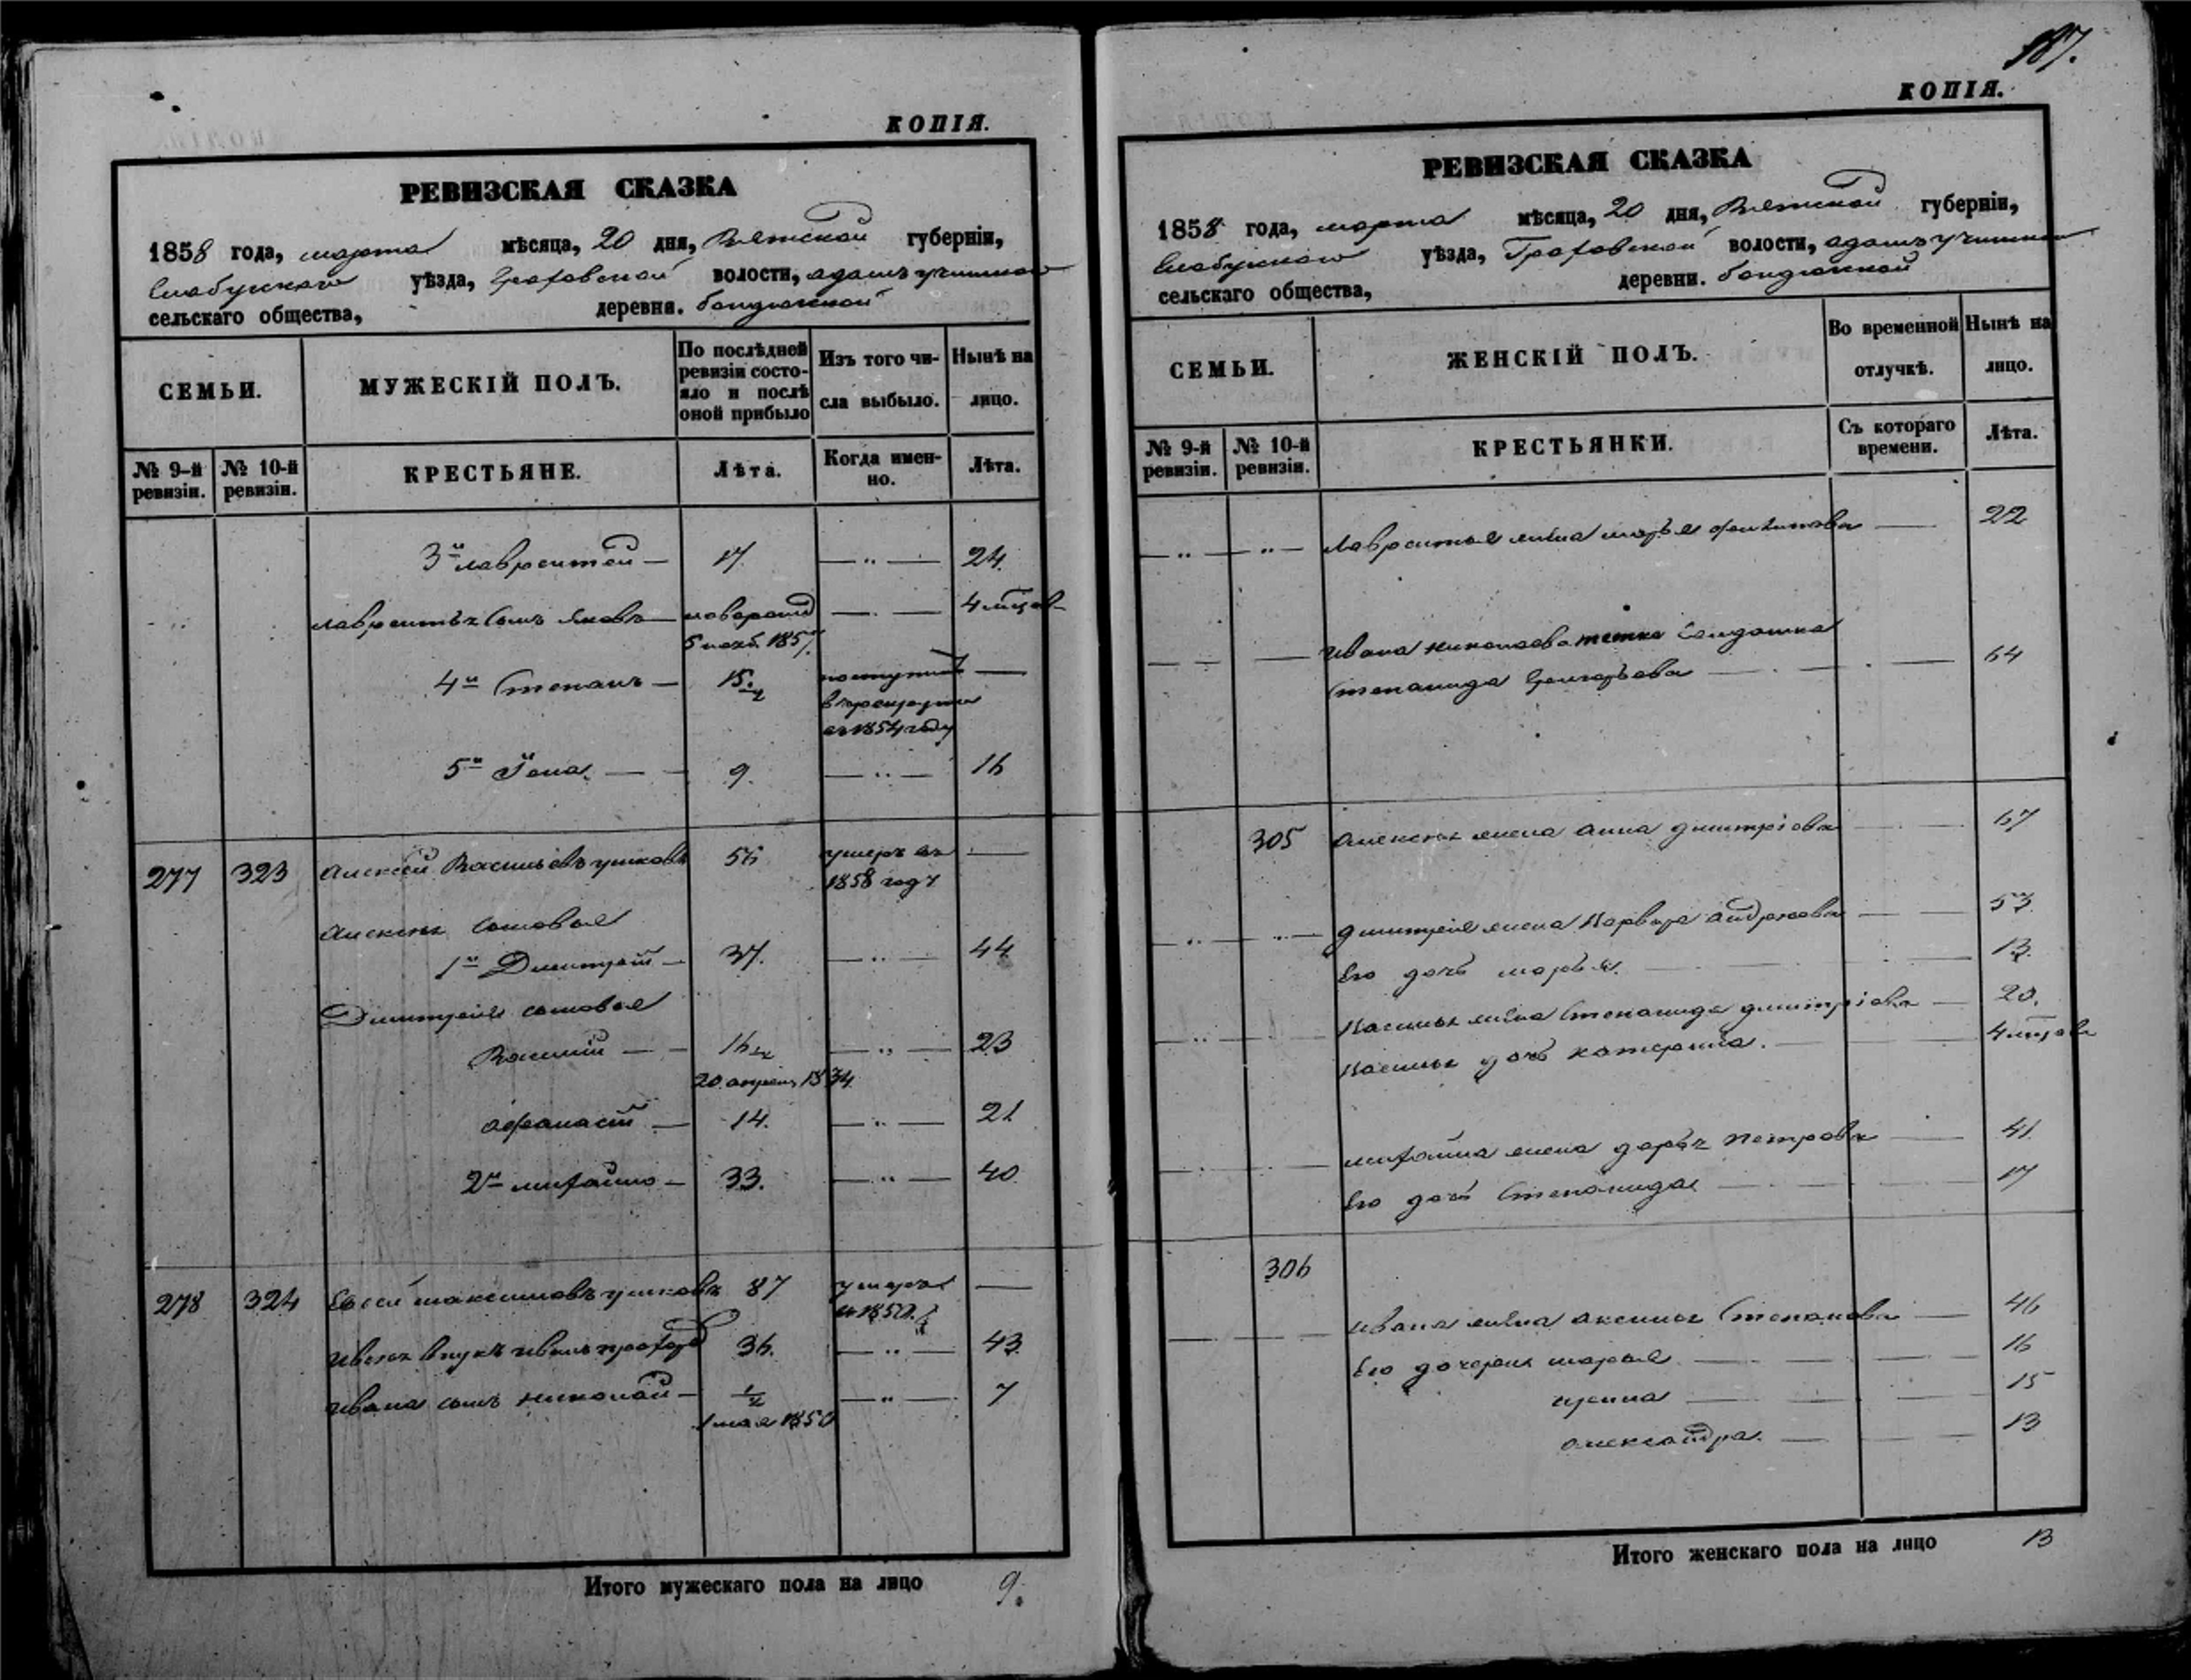 187.
КОПІЯ.
РЕВИЗСКАЯ СКАЗКА
1858 года, марта мѣсяца, 20 дня, Вятской губерніи,
Елабужскаго уѣзда, Граховской волости,
сельскаго общества, деревни.
СЕМЬИ.
МУЖЕСКІЙ ПОЛЪ.
По послѣдней ревизіи состояло и послѣ оной прибыло
Изъ того числа выбыло.
Нынѣ на лицо.
№ 9-й ревизіи.
№ 10-й ревизіи.
КРЕСТЬЯНЕ.
Лѣта.
Когда именно.
Лѣта.
3й Лаврентей — 17. — „ — 24.
Лаврентья сынъ Яковъ — — 4
1857.
4й Степанъ — 15. —
1854 году
5й Іона — 9. — „ — 16
277 323 Алексей Васильевъ Ушковъ 56 умеръ въ —
1858 году
Алексея сыновья
1й Дмитрей — 37. — „ — 44
Дмитрея сыновья
Василій — 16 — „ — 23
20 апреля 1834
Афанасій — 14. — „ — 21
2й Михайло — 33. — „ — 40
278 324 Евсей Максимовъ Ушковъ 87 умеръ —
Евсея внукъ Иванъ 36. — „ — 43
Ивана сынъ Николай — 1/2 — „ — 7
1 мая 1850
Итого мужескаго пола на лицо 9.
КОПІЯ.
РЕВИЗСКАЯ СКАЗКА
1858 года, марта мѣсяца, 20 дня, Вятской губерніи,
Елабужскаго уѣзда, Граховской волости,
сельскаго общества, деревни.
СЕМЬИ.
ЖЕНСКІЙ ПОЛЪ.
Во временной отлучкѣ.
Нынѣ на лицо.
№ 9-й ревизіи.
№ 10-й ревизіи.
КРЕСТЬЯНКИ.
Съ котораго времени.
Лѣта.
— „ — „ — Лаврентья жена Марья — 22
Ивана Николаева тетка солдатка
Степанида Григорьева — 64
305 Алексея жена Анна Дмитріева — 67
— „ — „ — Дмитрея жена Варвара Андреева — 53
Его дочь Марья. — 13.
— „ — „ — Василья жена Степанида Дмитріева — 20.
Василья дочь Катерина. — 4
Михайла жена Дарья Петрова — 41.
Его дочь Степанида — 17
306
Ивана жена Аксинья Степанова — 46
Его дочери Марья — 16
— 15
Александра. — 13
Итого женскаго пола на лицо 13